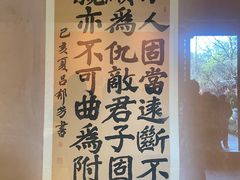 人固當遠斷不
為仇敵君子固
亦不可曲為附
己亥夏吕郁芳書